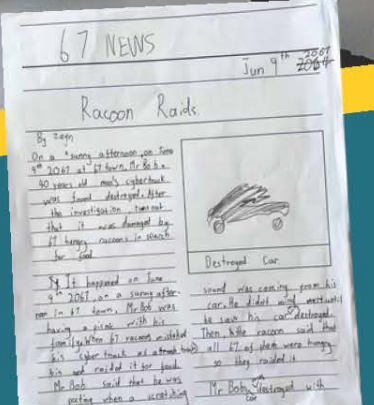 67 NEWS
Jun 9th 2067
Racoon Raids.
By Zayn
On a sunny afternoon, on June
9th 2067 at 67 town, Mr Bob, a
40 years old man's cybertruck
was found destroyed. After
the investigation, turns out
that it was damaged by
67 hungry racoons in search
for food.
It happened on June
9th 2067, on a sunny after-
noon in 67 town. Mr Bob was
having a picnic with his
family. When 67 racoons mistaked
his cyber truck as
bin and raided it for food.
Mr Bob said that he was
when a scratching
Destroyed Car.
sound was coming from his
car. He didnt mind until
he saw his car destroyed.
Then the racoon said that
all 67 of them were hungry
so they raided it.
Mr Bob's destroyed with
car